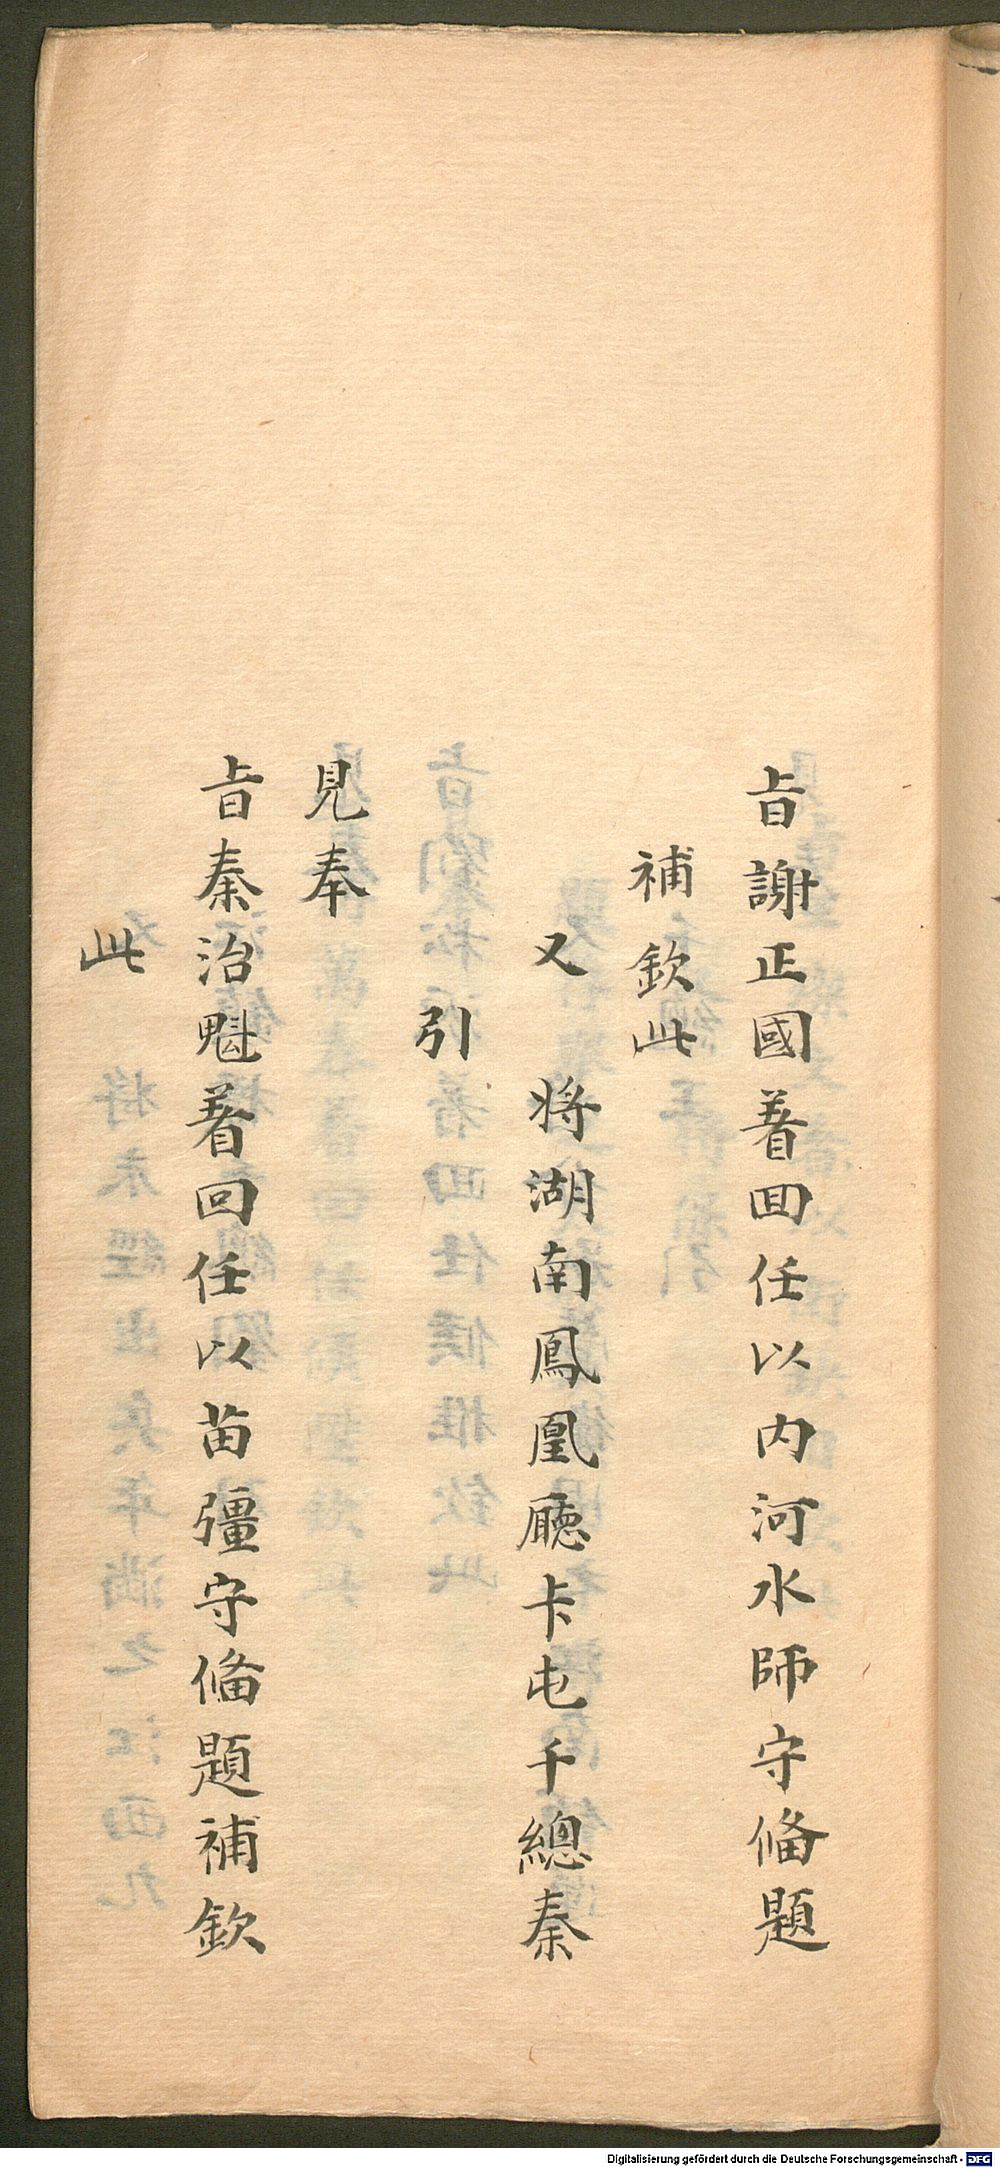 旨謝正國着回任以内河水師守俻題
補欽此
又將湖南鳳凰廳卡屯千總秦
引
見奉
旨秦治魁着回任以苗疆守俻題補欽
此
Digitalisierung gefördert durch die Deutsche Forschungsgemeinschaft - DFG